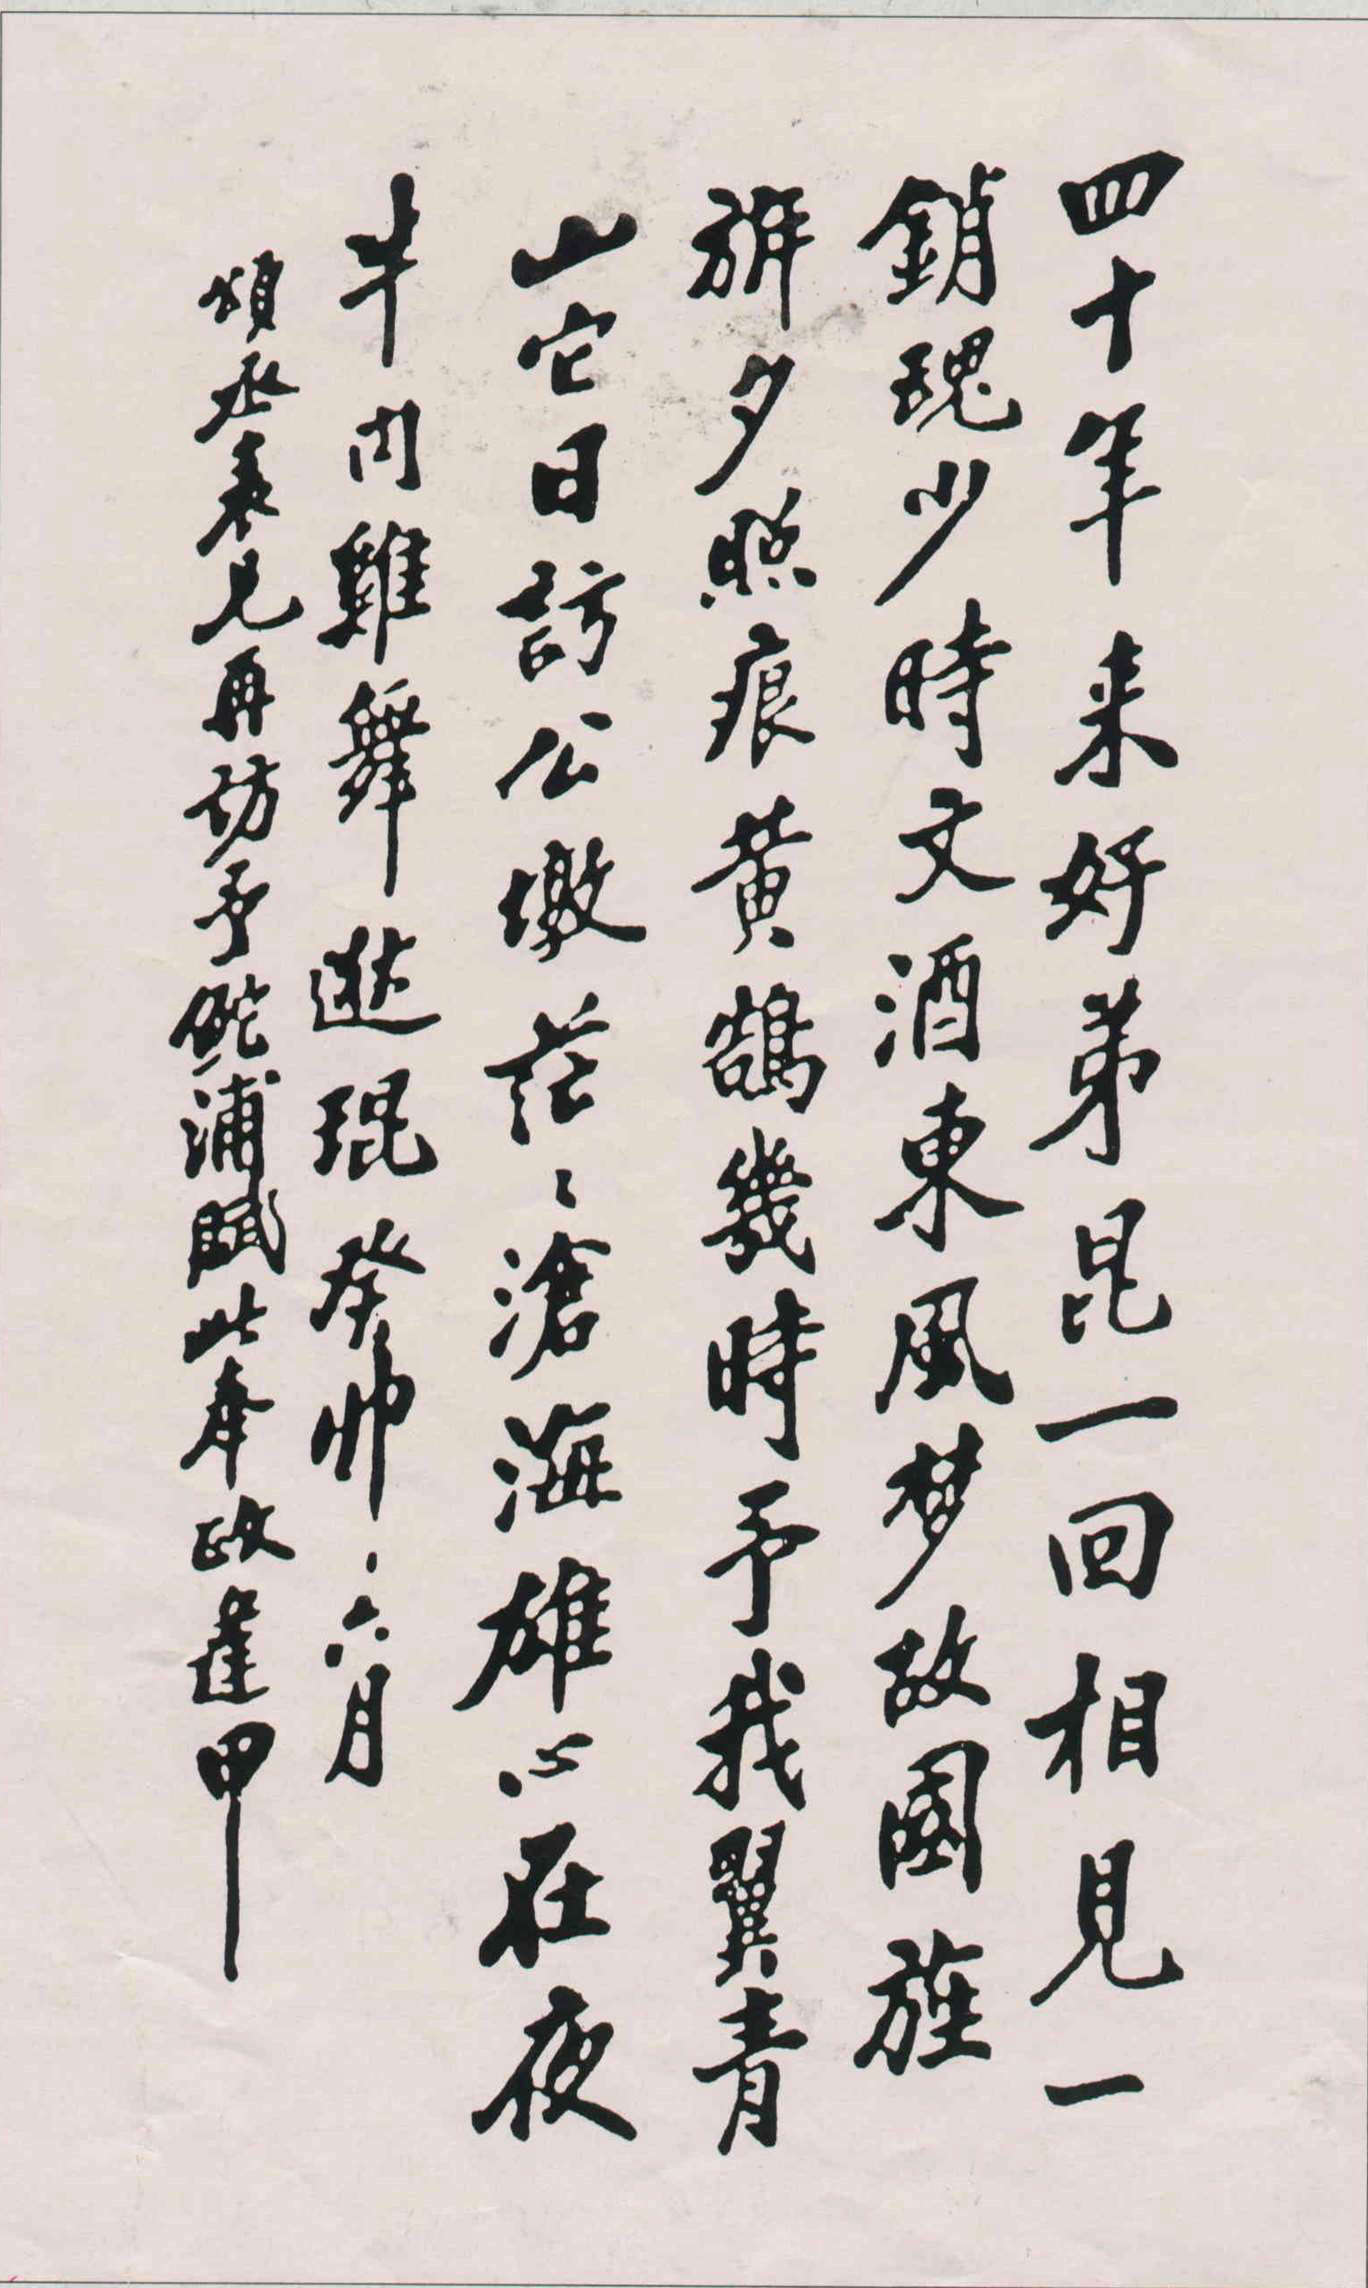 四十年来好弟昆一回相見一
銷魂少時文酒東風梦故國旌
旂夕照痕黄鵠幾時予我翼青
山它日訪公墩茫〻滄海雄心在夜
半聞雞舞逖琨 癸卯六月
頌丞表兄再訪予鮀浦賦此奉政逢甲